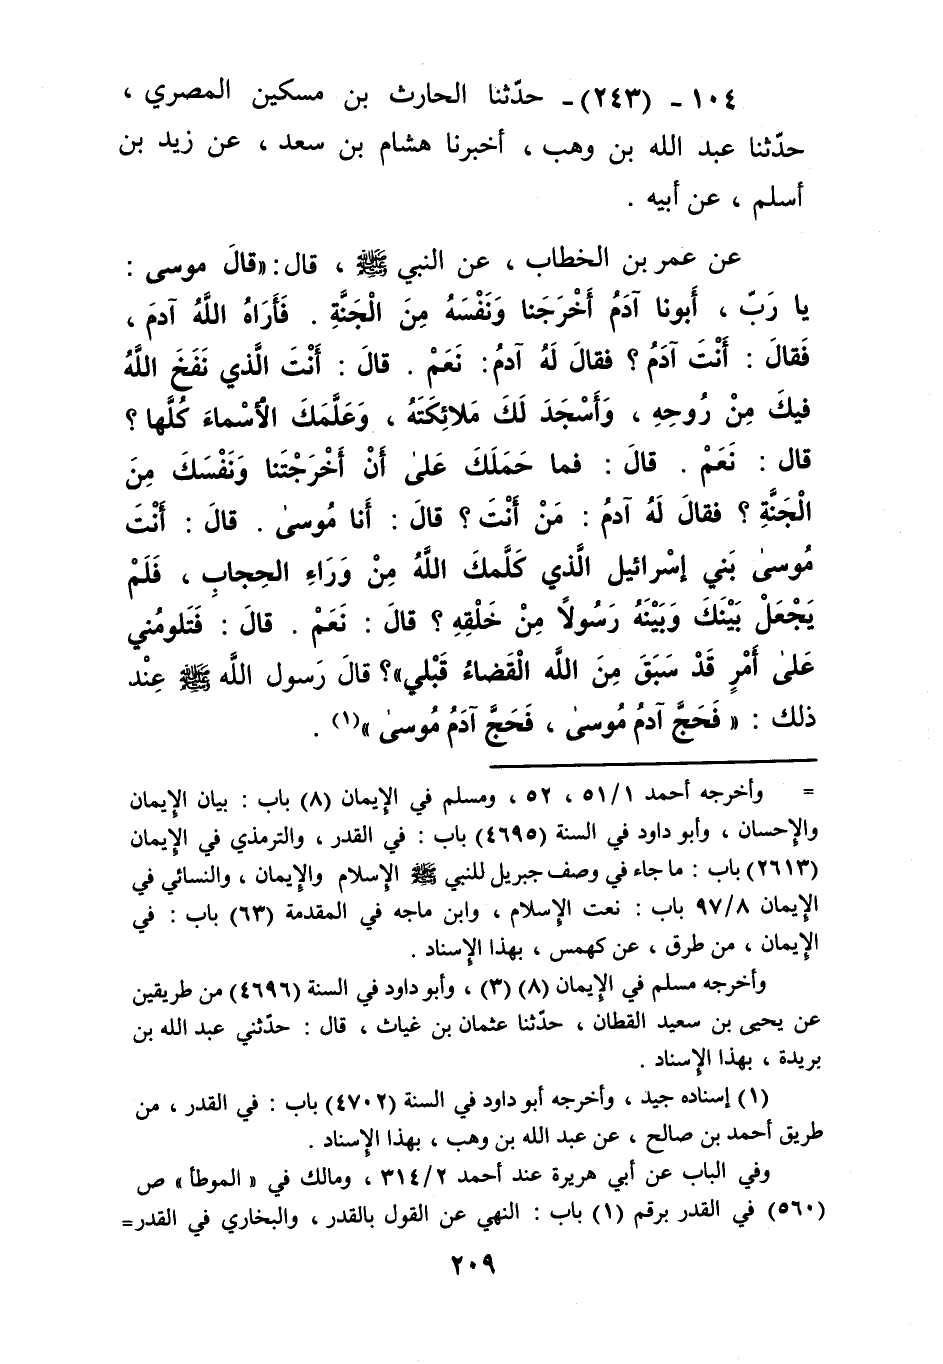 ١٠٤ - (٢٤٣) - حدّثنا الحارث بن مسكين المصري ،
حدّثنا عبد الله بن وهب ، أخبرنا هشام بن سعد ، عن زيد بن
أسلم ، عن أبيه .
عن عمر بن الخطاب ، عن النبي ﷺ ، قال : « قالَ موسى :
يا رَبّ ، أَبونا آدَمُ أَخْرَجَنا وَنَفْسَهُ مِنَ الْجَنَّةِ . فَأَرَاهُ اللَّهُ آدمَ ،
فَقالَ : أَنْتَ آدَمُ ؟ فقالَ لَهُ آدمُ : نَعَمْ . قالَ : أَنْتَ الَّذي نَفَخَ اللَّهُ
فيكَ مِنْ رُوحِهِ ، وَأَسْجَدَ لَكَ مَلائِكَتَهُ ، وَعَلَّمَكَ الْأسْماءَ كُلَّها ؟
قال : نَعَمْ . قالَ : فما حَمَلَكَ عَلىٰ أَنْ أَخْرَجْتَنا وَنَفْسَكَ مِنَ
الْجَنَّةِ ؟ فقالَ لَهُ آدمُ : مَنْ أَنْتَ ؟ قالَ : أَنا مُوسىٰ . قالَ : أَنْتَ
مُوسىٰ بَني إسْرائيل الَّذي كَلَّمكَ اللَّهُ مِنْ وَرَاءِ الحِجابِ ، فَلَمْ
يَجْعَلْ بَيْنَكَ وَبَيْنَهُ رَسُولاً مِنْ خَلْقِهِ ؟ قالَ : نَعَمْ . قالَ : فَتَلومُني
عَلىٰ أَمْرٍ قَدْ سَبَقَ مِنَ اللَّه الْقَضاءُ قَبْلي » ؟ قالَ رَسول اللَّه ﷺ عِنْد
ذلك : « فَحَجَّ آدمُ مُوسىٰ ، فَحَجَّ آدَمُ مُوسىٰ »(١) .
= وأخرجه أحمد ٥١/١ ، ٥٢ ، ومسلم في الإيمان (٨) باب : بيان الإيمان
والإحسان ، وأبو داود في السنة (٤٦٩٥) باب : في القدر ، والترمذي في الإيمان
(٢٦١٣) باب : ما جاء في وصف جبريل للنبي ﷺ الإسلام والإيمان ، والنسائي في
الإيمان ٩٧/٨ باب : نعت الإسلام ، وابن ماجه في المقدمة (٦٣) باب : في
الإيمان ، من طرق ، عن كهمس ، بهذا الإسناد .
وأخرجه مسلم في الإيمان (٨) (٣) ، وأبو داود في السنة (٤٦٩٦) من طريقين
عن يحيى بن سعيد القطان ، حدّثنا عثمان بن غياث ، قال : حدّثني عبد الله بن
بريدة ، بهذا الإسناد .
(١) إسناده جيد ، وأخرجه أبو داود في السنة (٤٧٠٢) باب : في القدر ، من
طريق أحمد بن صالح ، عن عبد الله بن وهب ، بهذا الإسناد .
وفي الباب عن أبي هريرة عند أحمد ٣١٤/٢ ، ومالك في « الموطأ » ص
(٥٦٠) في القدر برقم (١) باب : النهي عن القول بالقدر ، والبخاري في القدر =
٢٠٩